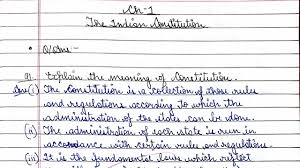 Ch-1
The Indian Constitution
• Q/Ans:-
Q1. Explain the meaning of Constitution.
Ans:(i) The Constitution is a collection of those rules
and regulations according to which the
administration of the state can be done.
(ii) The administration of each state is run in
accordance with certain rules and regulations.
(iii) It is the fundamental laws which reflect